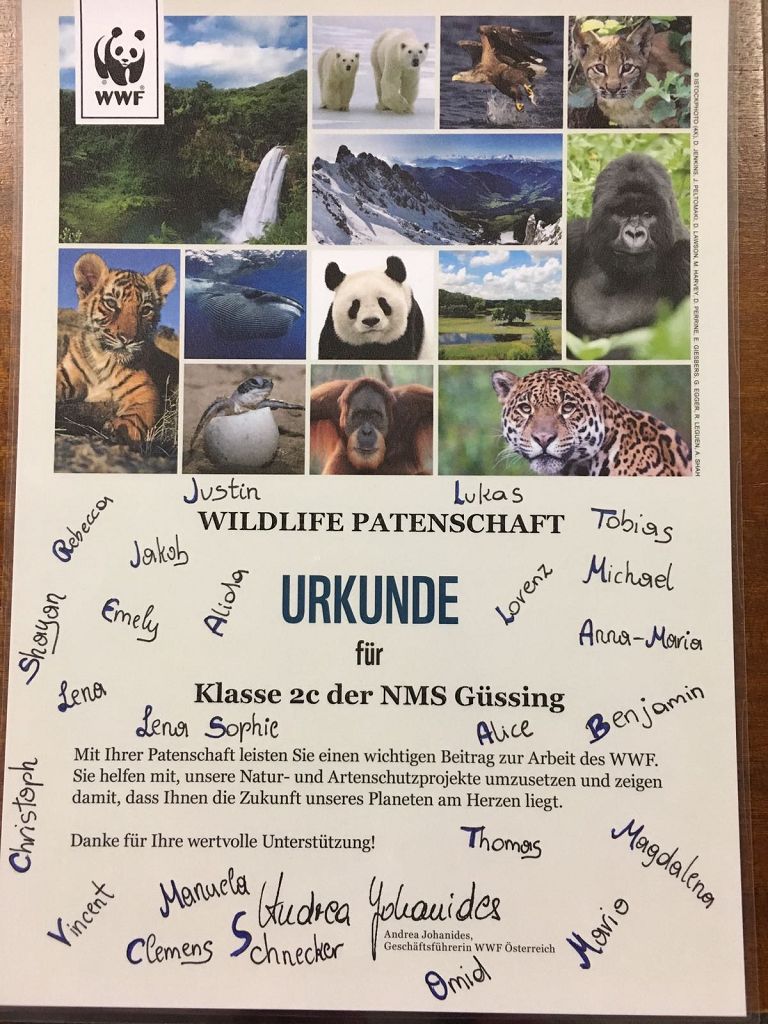 WWF
© ISTOCKPHOTO (4X), D. JENKINS, J. PELTOMAKI, D. LAWSON, M. HARVEY, D. PERRINE, E. GIESBERS, G. EGGER, R. LEGUEN, A. SHAH
Justin
Lukas
Rebecca
WILDLIFE PATENSCHAFT
Tobias
Jakob
Shayan
Emely
Aliola
URKUNDE
Lorenz
Michael
für
Anna-Maria
Lena
Klasse 2c der NMS Güssing
Lena Sophie
Alice
Benjamin
Mit Ihrer Patenschaft leisten Sie einen wichtigen Beitrag zur Arbeit des WWF.
Sie helfen mit, unsere Natur- und Artenschutzprojekte umzusetzen und zeigen
damit, dass Ihnen die Zukunft unseres Planeten am Herzen liegt.
Christoph
Danke für Ihre wertvolle Unterstützung!
Thomas
Magdalena
Vincent
Manuela
Andrea Johanides
Andrea Johanides,
Geschäftsführerin WWF Österreich
Clemens
Schnecker
Mario
Omid